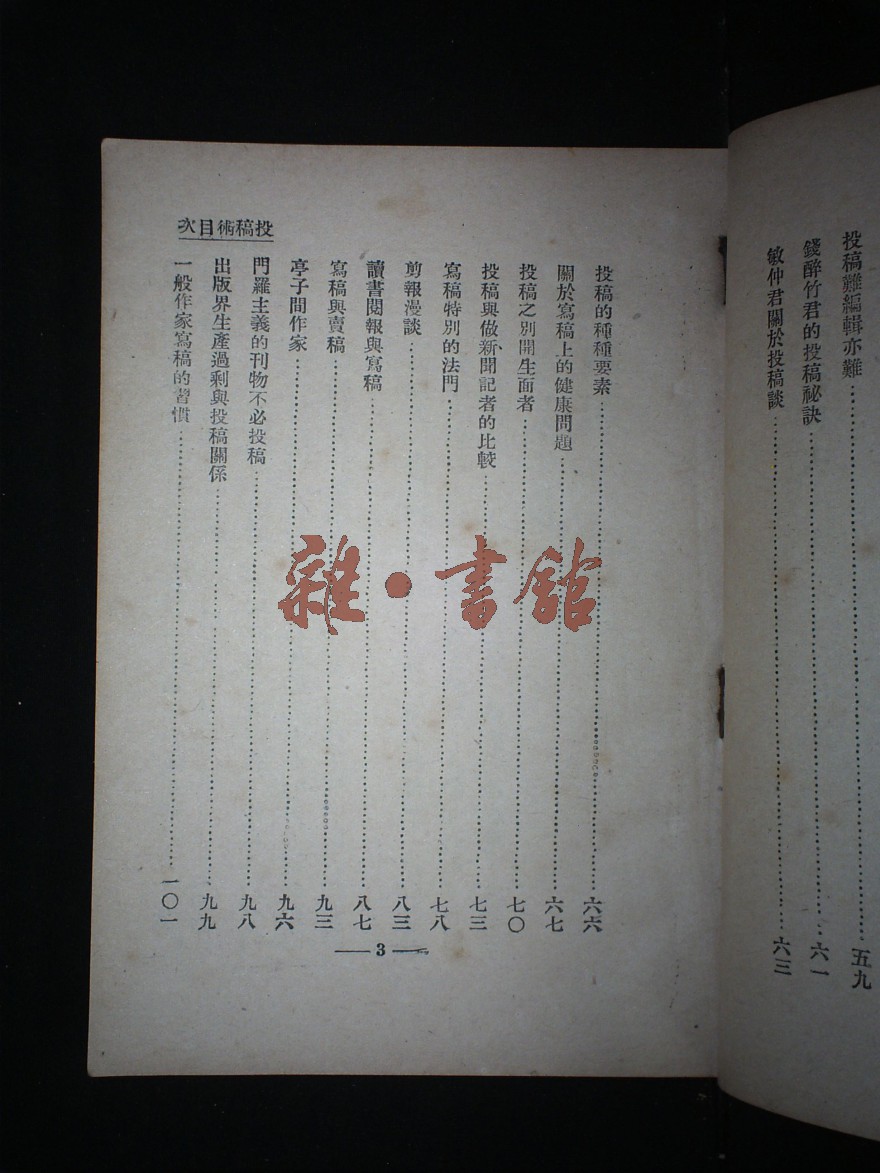 投稿難編輯亦難………五九
錢醉竹君的投稿祕訣………六一
敏仲君關於投稿談………六三
投稿的種種要素………六六
關於寫稿上的健康問題………六七
投稿之別開生面者………七〇
投稿與做新聞記者的比較………七三
寫稿特別的法門………七八
剪報漫談………八三
讀書閱報與寫稿………八七
寫稿與賣稿………九三
亭子間作家………九六
門羅主義的刊物不必投稿………九八
出版界生產過剩與投稿關係………九九
一般作家寫稿的習慣………一〇一
投稿術目次
3
雜·書館